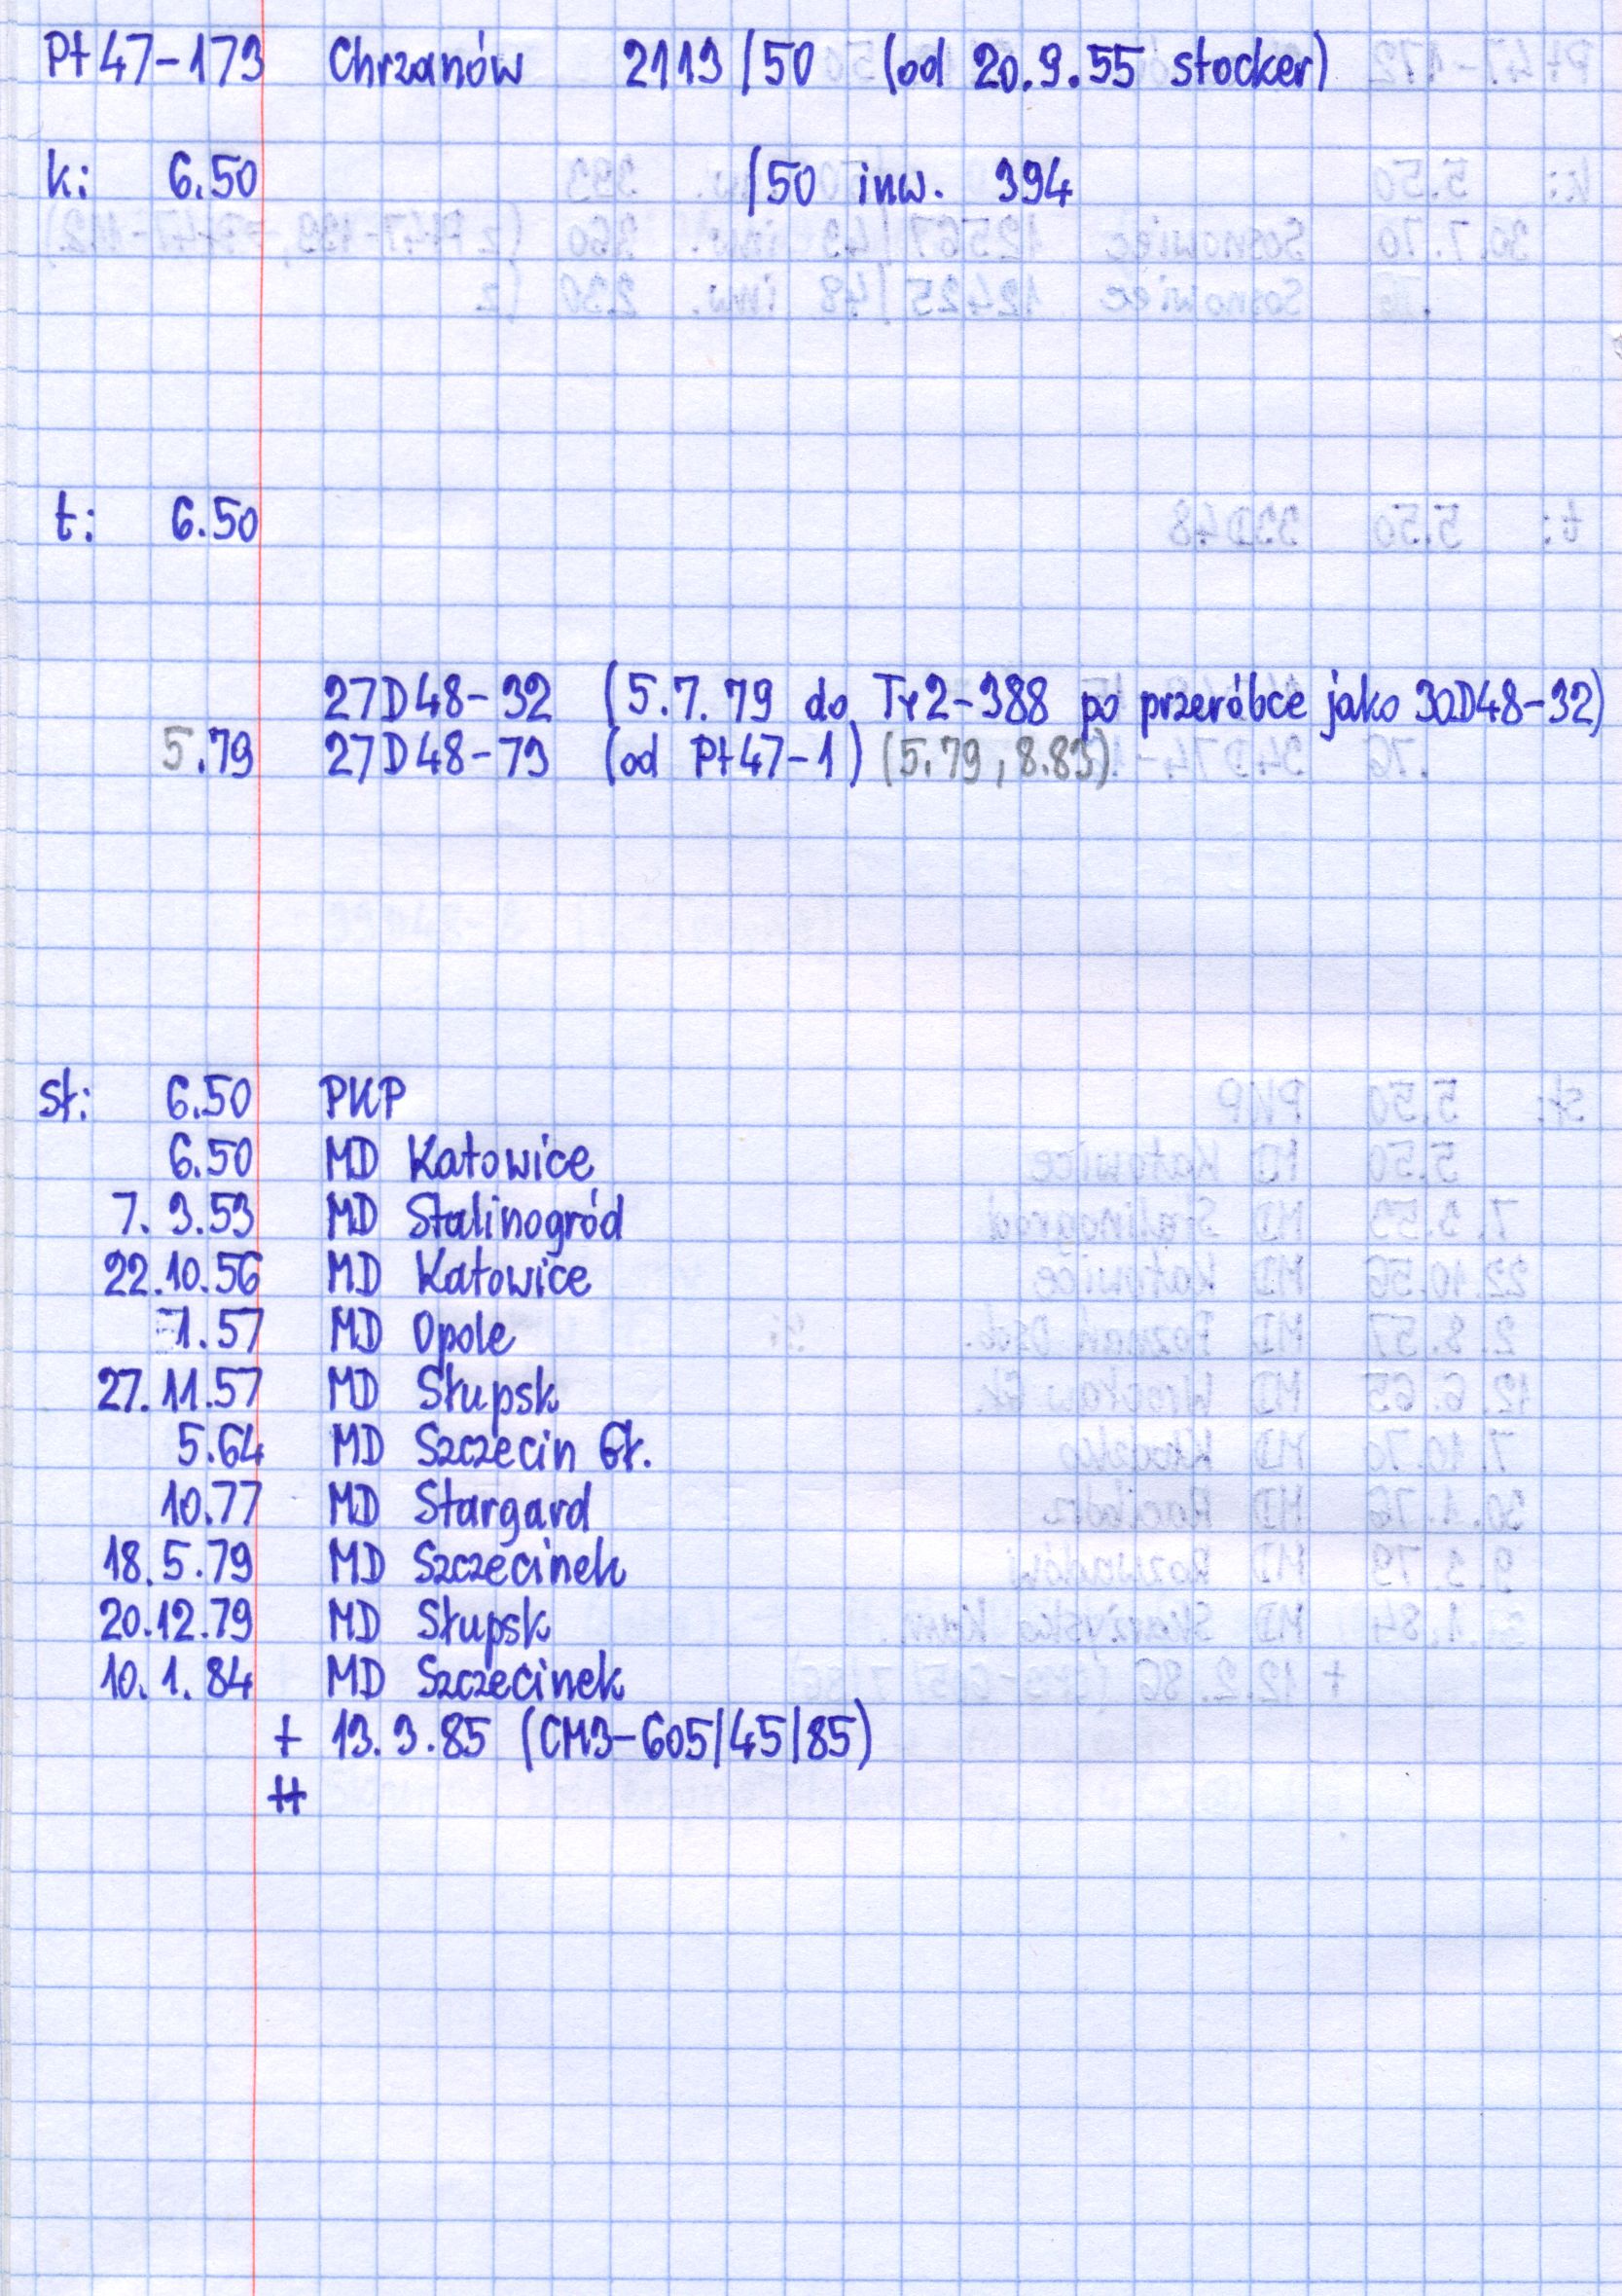 Pt47-173 Chrzanów 2113/50 (od 20.9.55 stocker)
k: 6.50 /50 inw. 394
t: 6.50
27D48-32 (5.7.79 do Ty2-388 po przeróbce jako 30D48-32)
5.79 27D48-73 (od Pt47-1) (5.79, 8.83)
st: 6.50 PKP
6.50 MD Katowice
7.3.53 MD Stalinogród
22.10.56 MD Katowice
1.57 MD Opole
27.11.57 MD Słupsk
5.64 MD Szczecin Gł.
10.77 MD Stargard
18.5.79 MD Szczecinek
20.12.79 MD Słupsk
10.1.84 MD Szczecinek
+ 13.3.85 (CM3-605/45/85)
++